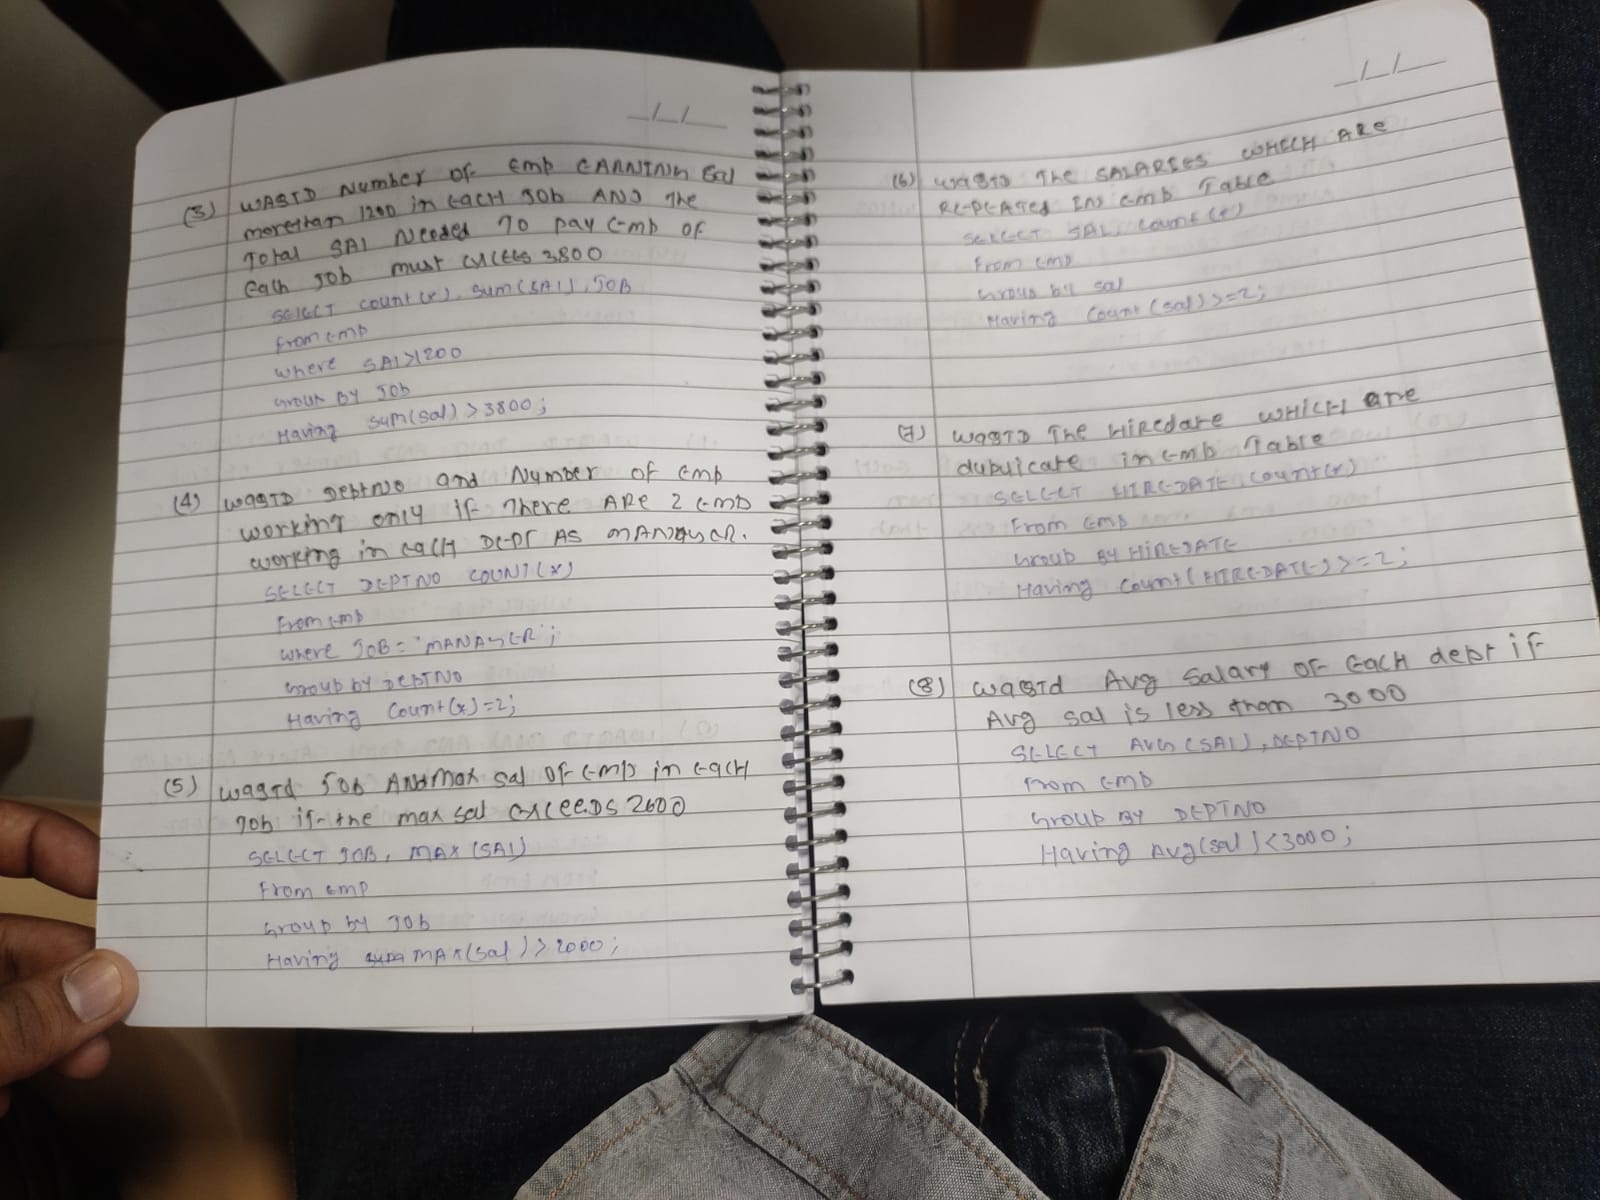 _/_/_
(3) WAQTD Number OF Emp EARNING Sal
morethan 1200 in EACH JOB AND The
Total SAL Needed TO pay Emp of
Each Job must exceeds 3800
SELECT count(*), sum(SAL), JOB
From emp
where SAL>1200
Group BY Job
Having sum(sal) > 3800;
(4) WAQTD DeptNO and Number OF Emp
working only if There ARE 2 Emp
working in each DEPT AS MANAGER.
SELECT DEPTNO COUNT(*)
From emp
where JOB = 'MANAGER';
Group by DEPTNO
Having Count(*)=2;
(5) WAQTd Job And Max Sal OF Emp in EACH
Job if the max sal exceeDS 2600
SELECT JOB, MAX(SAL)
From Emp
Group by Job
Having MAX(sal) > 2000;
_/_/_
(6) WAQTD The SALARIES WHICH ARE
REPEATED IN Emp Table
SELECT SAL, Count(*)
From emp
Group by sal
Having Count(sal)>=2;
(7) WAQTD The Hiredate WHICH are
duplicate in Emp Table
SELECT HIREDATE Count(*)
From emp
Group BY HIREDATE
Having Count(HIREDATE)>=2;
(8) WAQTd Avg Salary OF Each dept if
Avg sal is less than 3000
SELECT AVG(SAL), DEPTNO
From Emp
Group BY DEPTNO
Having Avg(sal)<3000;